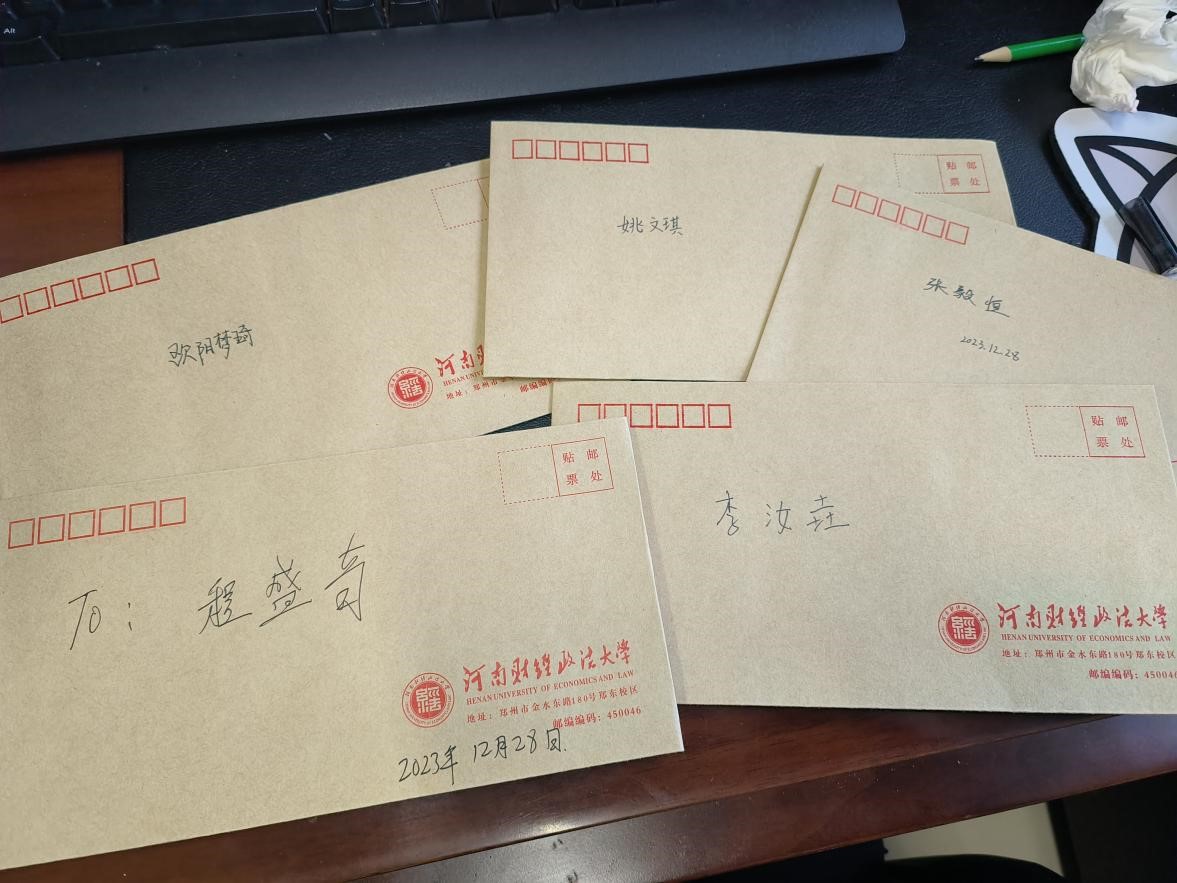 Alt
贴 邮
票 处
姚文琪
张毅恒
2023.12.28
欧阳梦琦
河南财
HENAN UNIV
地址：郑州市金
邮编编
贴 邮
票 处
To：程盛奇
河南财经政法大学
HENAN UNIVERSITY OF ECONOMICS AND LAW
地址：郑州市金水东路180号郑东校区
邮编编码：450046
2023年12月28日.
贴 邮
票 处
李汝垚
河南财经政法大学
HENAN UNIVERSITY OF ECONOMICS AND LAW
地址：郑州市金水东路180号郑东校区
邮编编码：450046